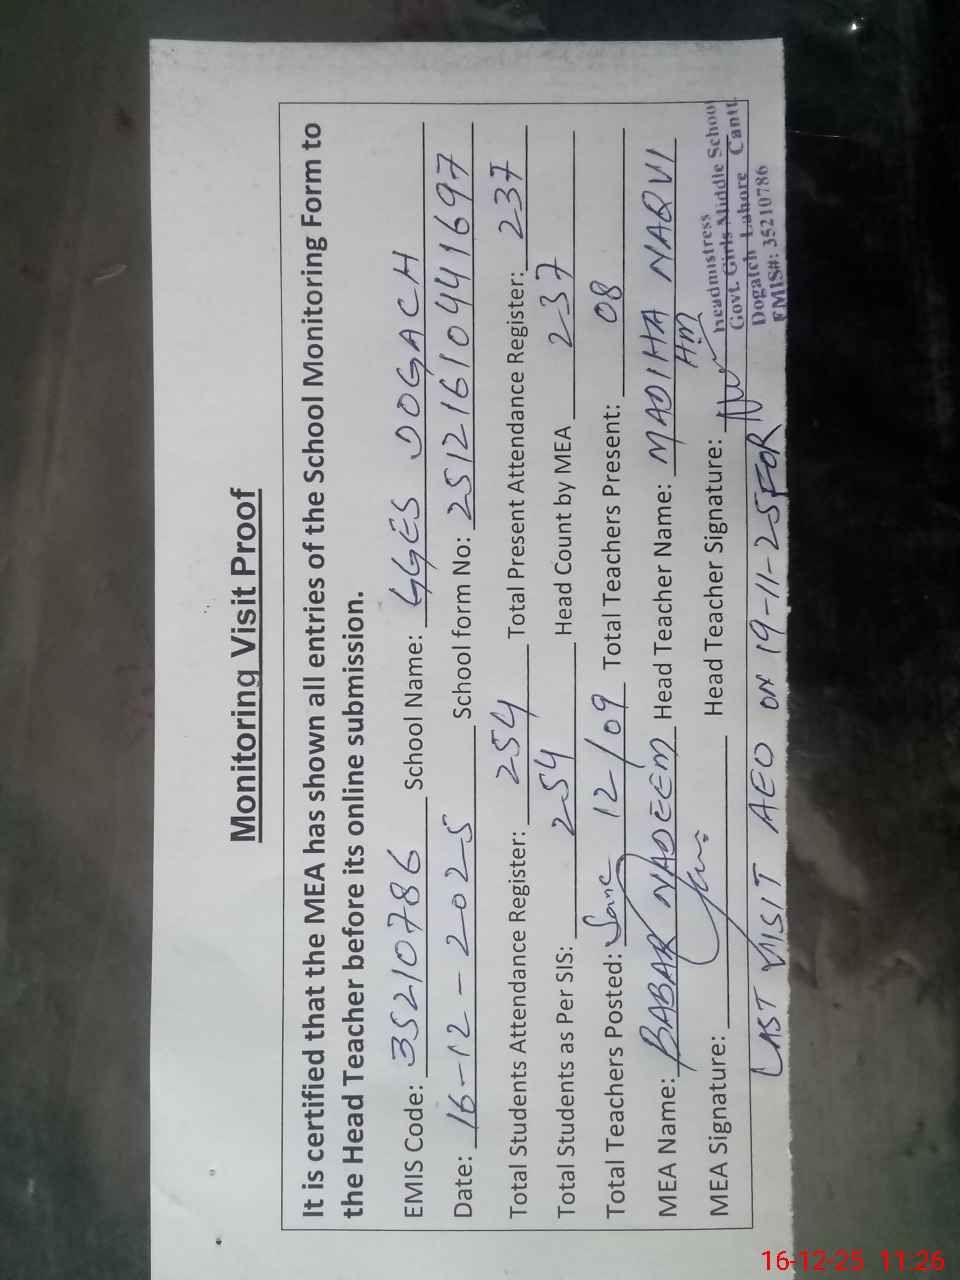 Monitoring Visit Proof
It is certified that the MEA has shown all entries of the School Monitoring Form to
the Head Teacher before its online submission.
EMIS Code: 35210786 School Name: GGES DOGACH
Date: 16-12-2025 School form No: 2512161044 1697
Total Students Attendance Register: 254 Total Present Attendance Register: 237
Total Students as Per SIS: 254 Head Count by MEA 237
Total Teachers Posted: Sanc 12/09 Total Teachers Present: 08
MEA Name: BABAR NADEEM Head Teacher Name: MADIHA NAQVI
HM
MEA Signature: Head Teacher Signature:
Headmistress
Govt. Girls Middle School
Dogaich Lahore Cantt.
EMIS#: 35210786
LAST VISIT AEO ON 19-11-25 FOR
16-12-25 11:26